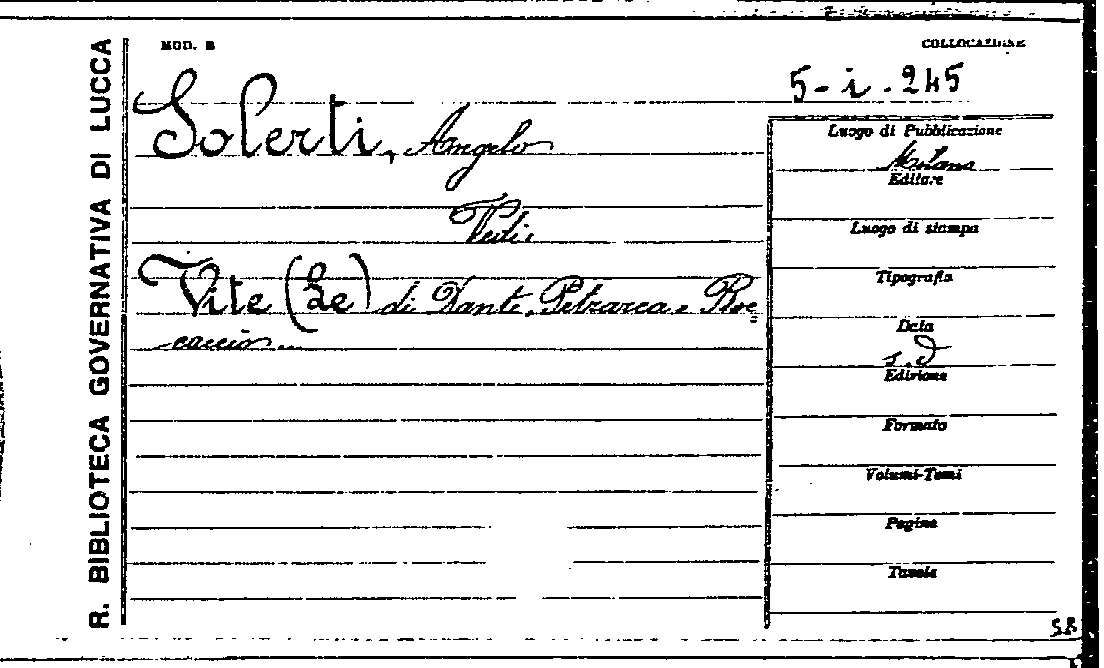 R. BIBLIOTECA GOVERNATIVA DI LUCCA
MOD. B
COLLOCAZIONE
5-i.245
Solerti, Angelo
Vedi:
Vite (Le) di Dante, Petrarca e Boc=
caccio...
Luogo di Pubblicazione
Milano
Editore
Luogo di stampa
Tipografia
Data
s.d
Edizione
Formato
Volumi-Tomi
Pagine
Tavole